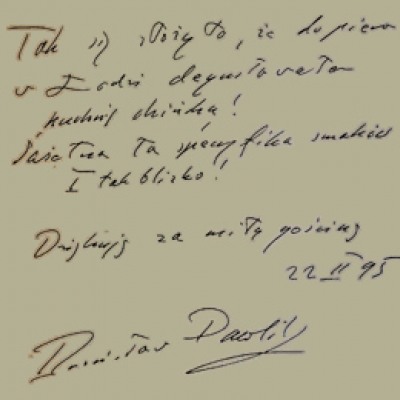 Tak się złożyło, że dopiero
w Łodzi degustowałem
kuchnię chińską!
Świetna ta specyfika smaków
I tak blisko!
Dziękuję za miłą gościnę
22 II 95